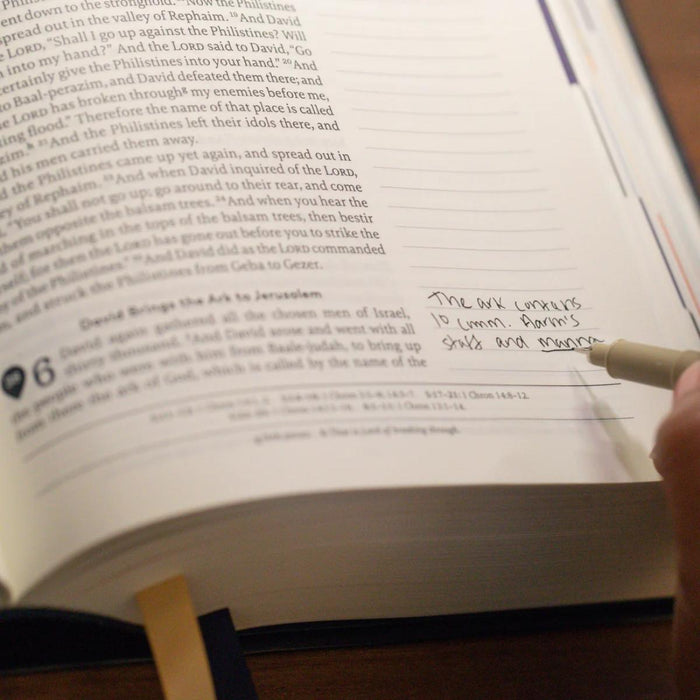 Philistines
ent down to the stronghold. Now the Philistines
spread out in the valley of Rephaim. 19 And David
e LORD, "Shall I go up against the Philistines? Will
into my hand?" And the LORD said to David, "Go
certainly give the Philistines into your hand." 20 And
to Baal-perazim, and David defeated them there; and
e LORD has broken through g my enemies before me,
ing flood." Therefore the name of that place is called
zim. h 21 And the Philistines left their idols there, and
d his men carried them away.
d the Philistines came up yet again, and spread out in
ey of Rephaim. 23 And when David inquired of the LORD,
"You shall not go up; go around to their rear, and come
them opposite the balsam trees. 24 And when you hear the
d of marching in the tops of the balsam trees, then bestir
self, for then the LORD has gone out before you to strike the
y of the Philistines." 25 And David did as the LORD commanded
m, and struck the Philistines from Geba to Gezer.
David Brings the Ark to Jerusalem
6 David again gathered all the chosen men of Israel,
thirty thousand. 2 And David arose and went with all
the people who were with him from Baale-judah, to bring up
from there the ark of God, which is called by the name of the
The ark contains
10 comm. Aaron's
staff and manna
5:17-25; 1 Chron 14:8-12.